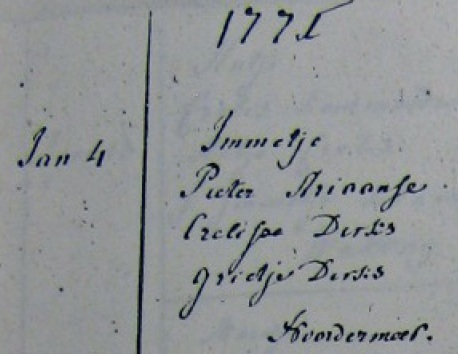 1771
Jan 4
Immetje
Pieter Ariaanse
Dirks
Grietje Dirks
Noordermeer.